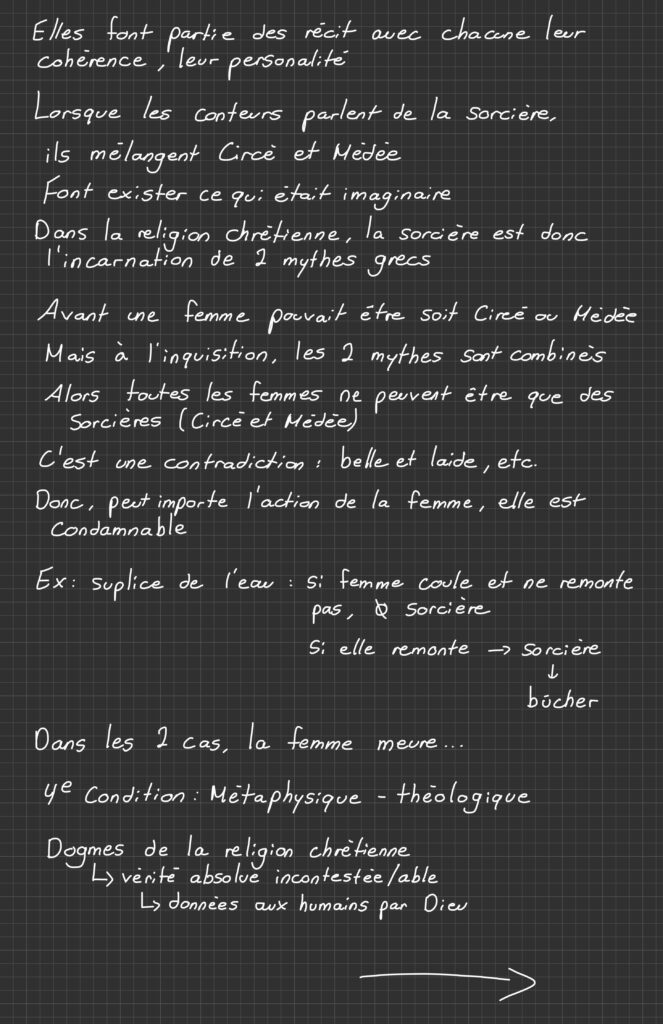 Elles font partie des récit avec chacune leur
cohérence, leur personalité
Lorsque les conteurs parlent de la sorcière,
ils mélangent Circé et Médée
Font exister ce qui était imaginaire
Dans la religion chrétienne, la sorcière est donc
l'incarnation de 2 mythes grecs
Avant une femme pouvait être soit Circé ou Médée
Mais à l'inquisition, les 2 mythes sont combinés
Alors toutes les femmes ne peuvent être que des
sorcières (Circé et Médée)
C'est une contradiction : belle et laide, etc.
Donc, peut importe l'action de la femme, elle est
condamnable
Ex : suplice de l'eau : si femme coule et ne remonte
pas, Ø sorcière
si elle remonte → sorcière
↓
bûcher
Dans les 2 cas, la femme meure...
4e Condition : Métaphysique - théologique
Dogmes de la religion chrétienne
↳ vérité absolue incontestée/able
↳ données aux humains par Dieu
→